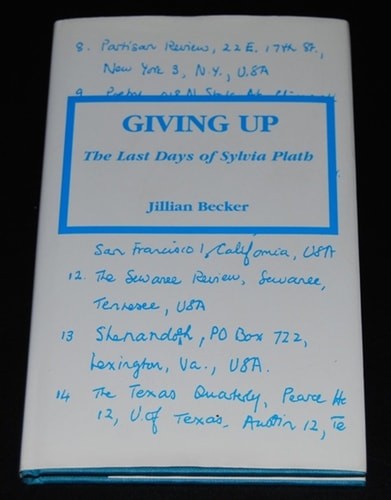 8. Partisan Review, 22 E. 17th St.,
New York 3, N.Y., U.S.A
9
GIVING UP
The Last Days of Sylvia Plath
Jillian Becker
San Francisco 1, California, USA
12. The Sewanee Review, Sewanee,
Tennesee, USA
13 Shenandoah, PO Box 722,
Lexington, Va., USA.
14 The Texas Quarterly, Pearce
12, U. of Texas, Austin 12, Te